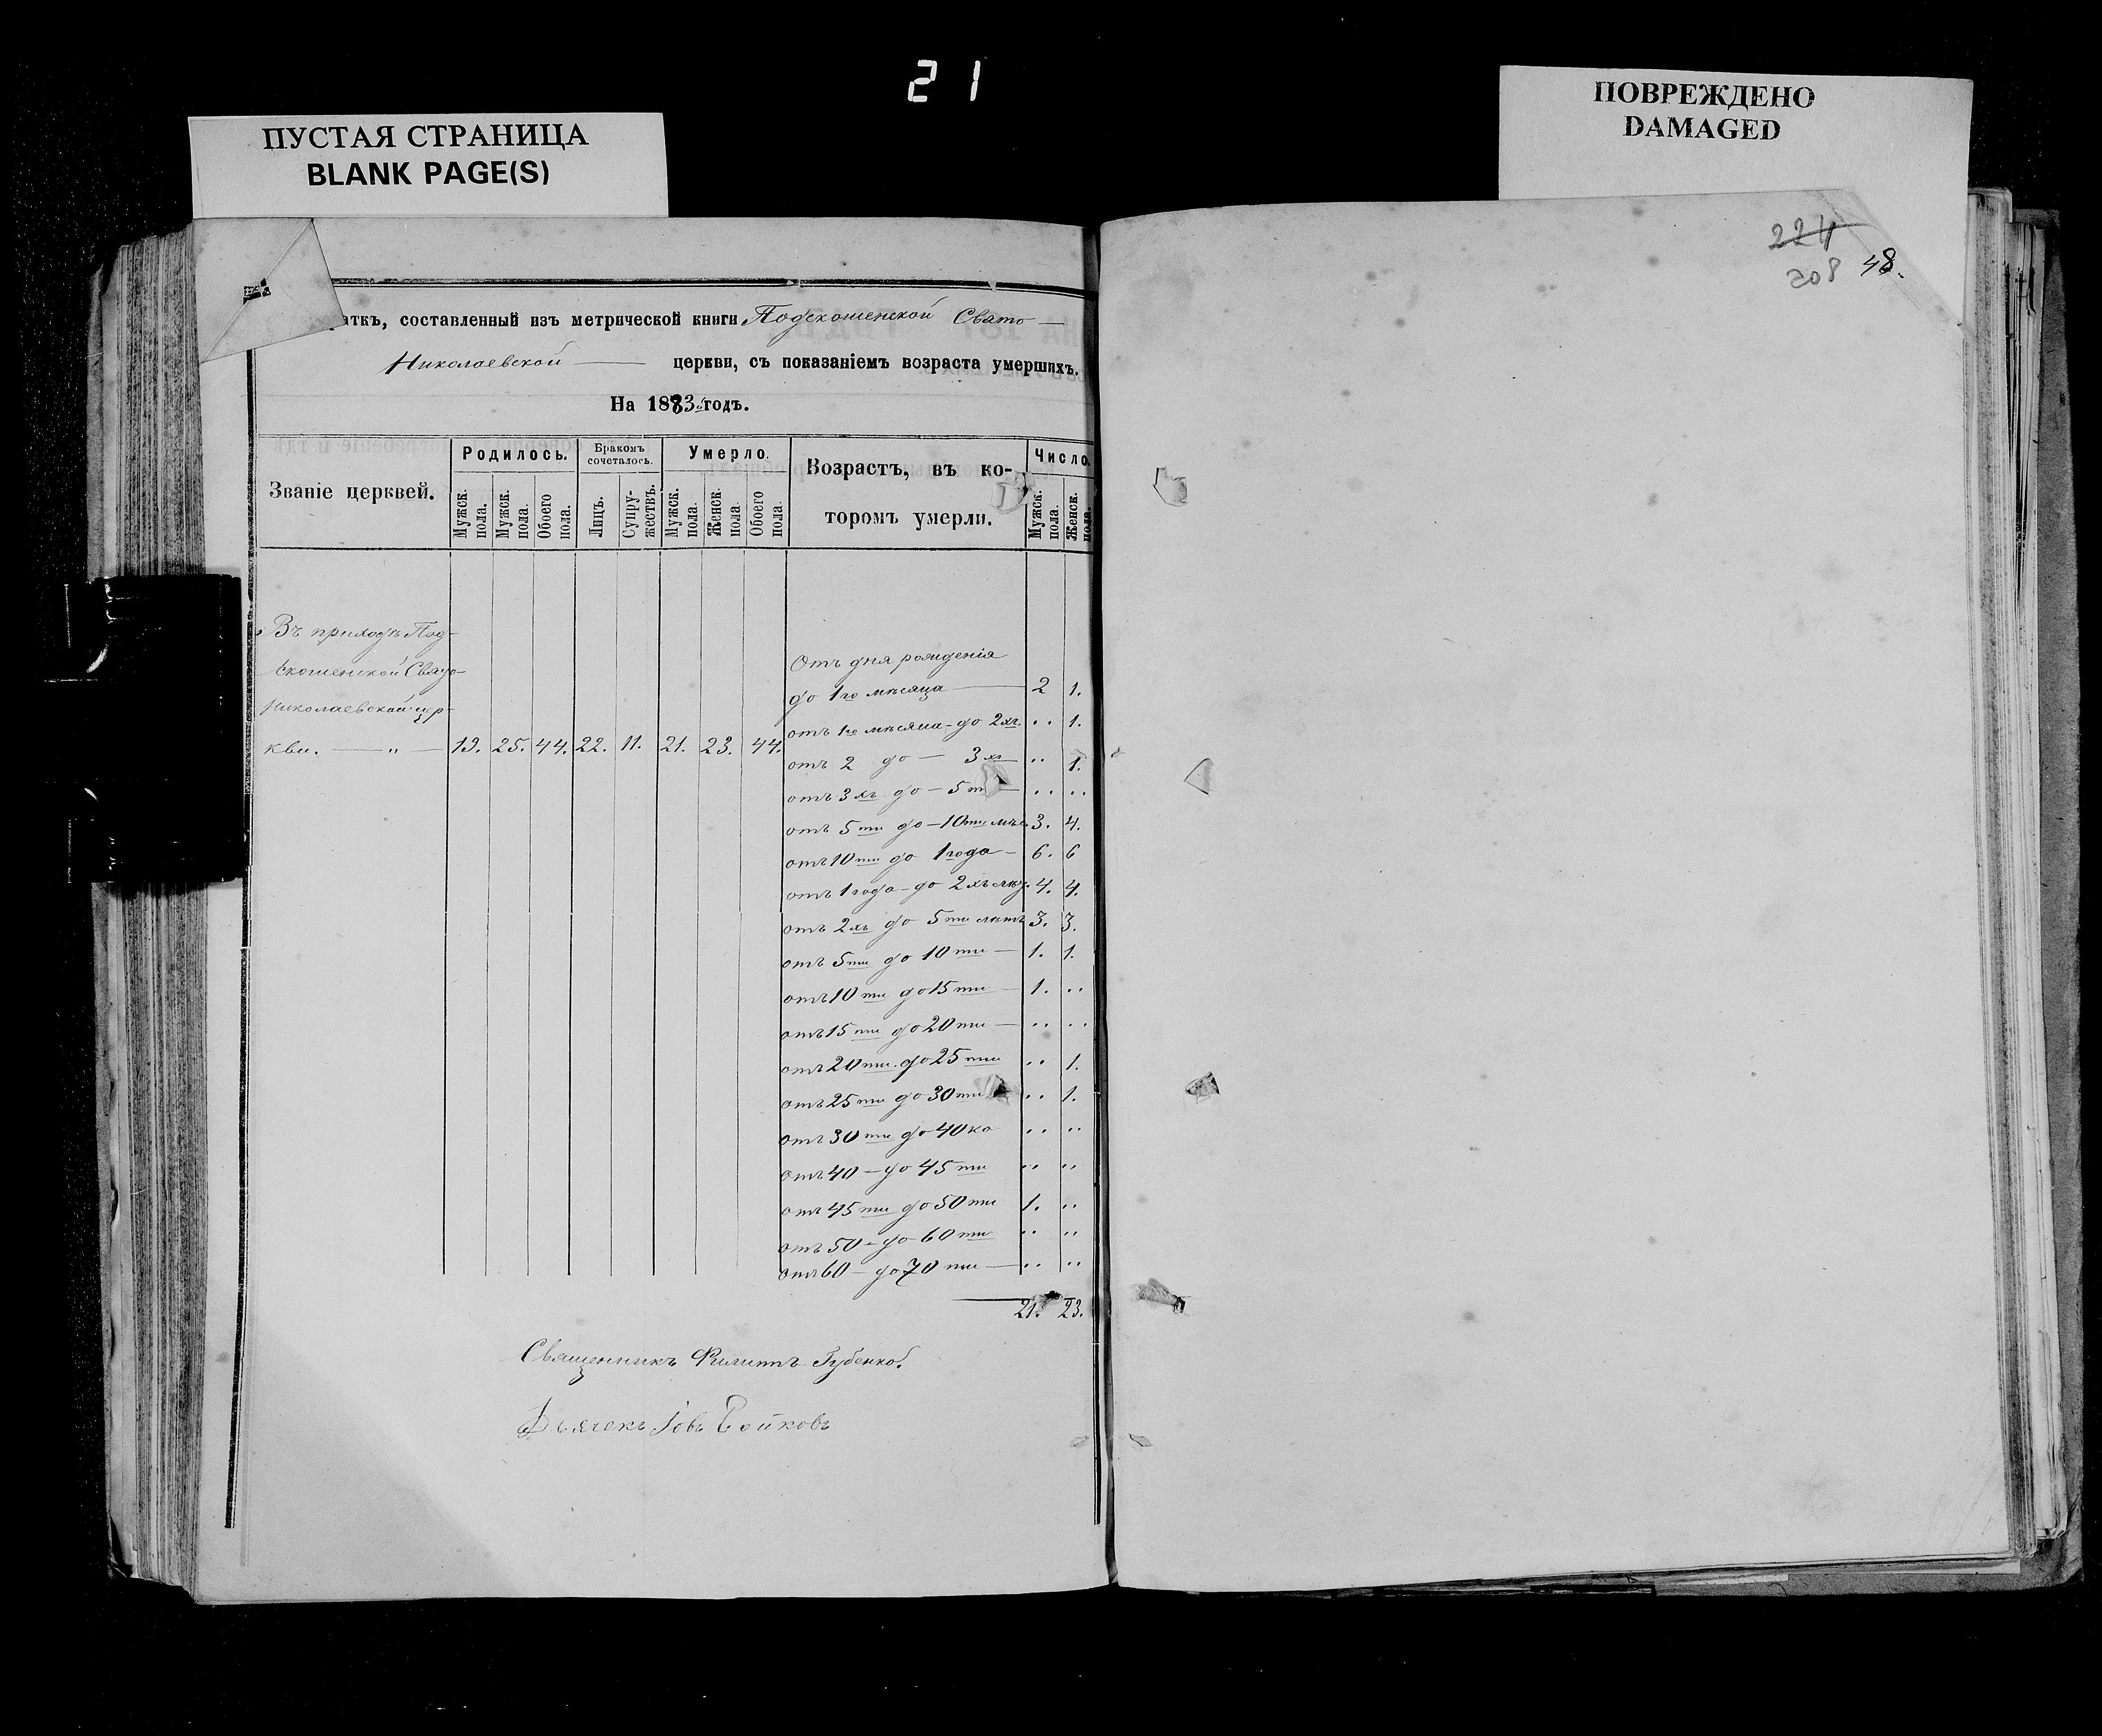 21
ПУСТАЯ СТРАНИЦА
BLANK PAGE(S)
ПОВРЕЖДЕНО
DAMAGED
224
208 48.
аткъ, составленный изъ метрической книги Подскошенской Свято —
Николаевской — церкви, съ показаніемъ возраста умершихъ.
На 1883 годъ.
Званіе церквей.
Родилось.
Бракомъ сочеталось.
Умерло.
Возрастъ, въ ко-
торомъ умерли.
Число.
Мужск. пола.
Мужск. пола.
Обоего пола.
Лицъ.
Супру-жествъ.
Мужск. пола.
Женск. пола.
Обоего пола.
Мужск. пола.
Женск. пола.
Въ приходѣ Под-
скошенской Свято-
Николаевской цер-
кви. — „ — 19. 25. 44. 22. 11. 21. 23. 44.
Отъ дня рожденія
до 1го мѣсяца — 2 1.
отъ 1го мѣсяца - до 2хъ. .. 1.
отъ 2 до — 3хъ .. 1.
отъ 3хъ до — 5ти — .. ..
отъ 5ти до — 10ти мѣс. 3. 4.
отъ 10ти до 1года — 6. 6
отъ 1года - до 2хъ лѣт. 4. 4.
отъ 2хъ до 5ти лѣтъ 3. 3.
отъ 5ти до 10ти — 1. 1.
отъ 10ти до 15ти — 1. ..
отъ 15ти до 20ти — .. ..
отъ 20ти до 25ти .. 1.
отъ 25ти до 30ти .. 1.
отъ 30ти до 40ка .. ..
отъ 40 — до 45ти .. ..
отъ 45ти до 50ти 1. ..
отъ 50 - до 60ти .. ..
отъ 60 — до 70ти — .. ..
21. 23.
Священникъ Филиппъ Губенков.
Дьячекъ Іовъ Бойковъ